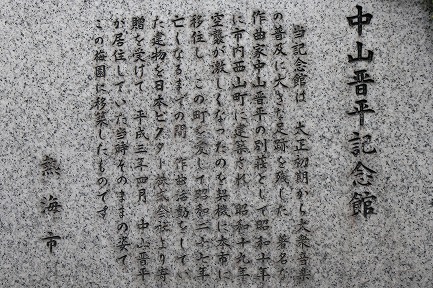 中山晋平記念館
当記念館は　大正初期から大衆音楽
の普及に大きな足跡を残した　著名な
作曲家中山晋平の別荘として昭和十年
に市内西山町に建築され　昭和十九年
空襲が激しくなったのを契機に本市に
移住し　この町を愛して昭和二十七年
亡くなるまでの間　作曲活動をしてい
た建物を日本ビクター株式会社より寄
贈を受けて　平成三年四月　中山晋平
が居住していた当時そのままの姿で
この梅園に移築したものです
熱海市